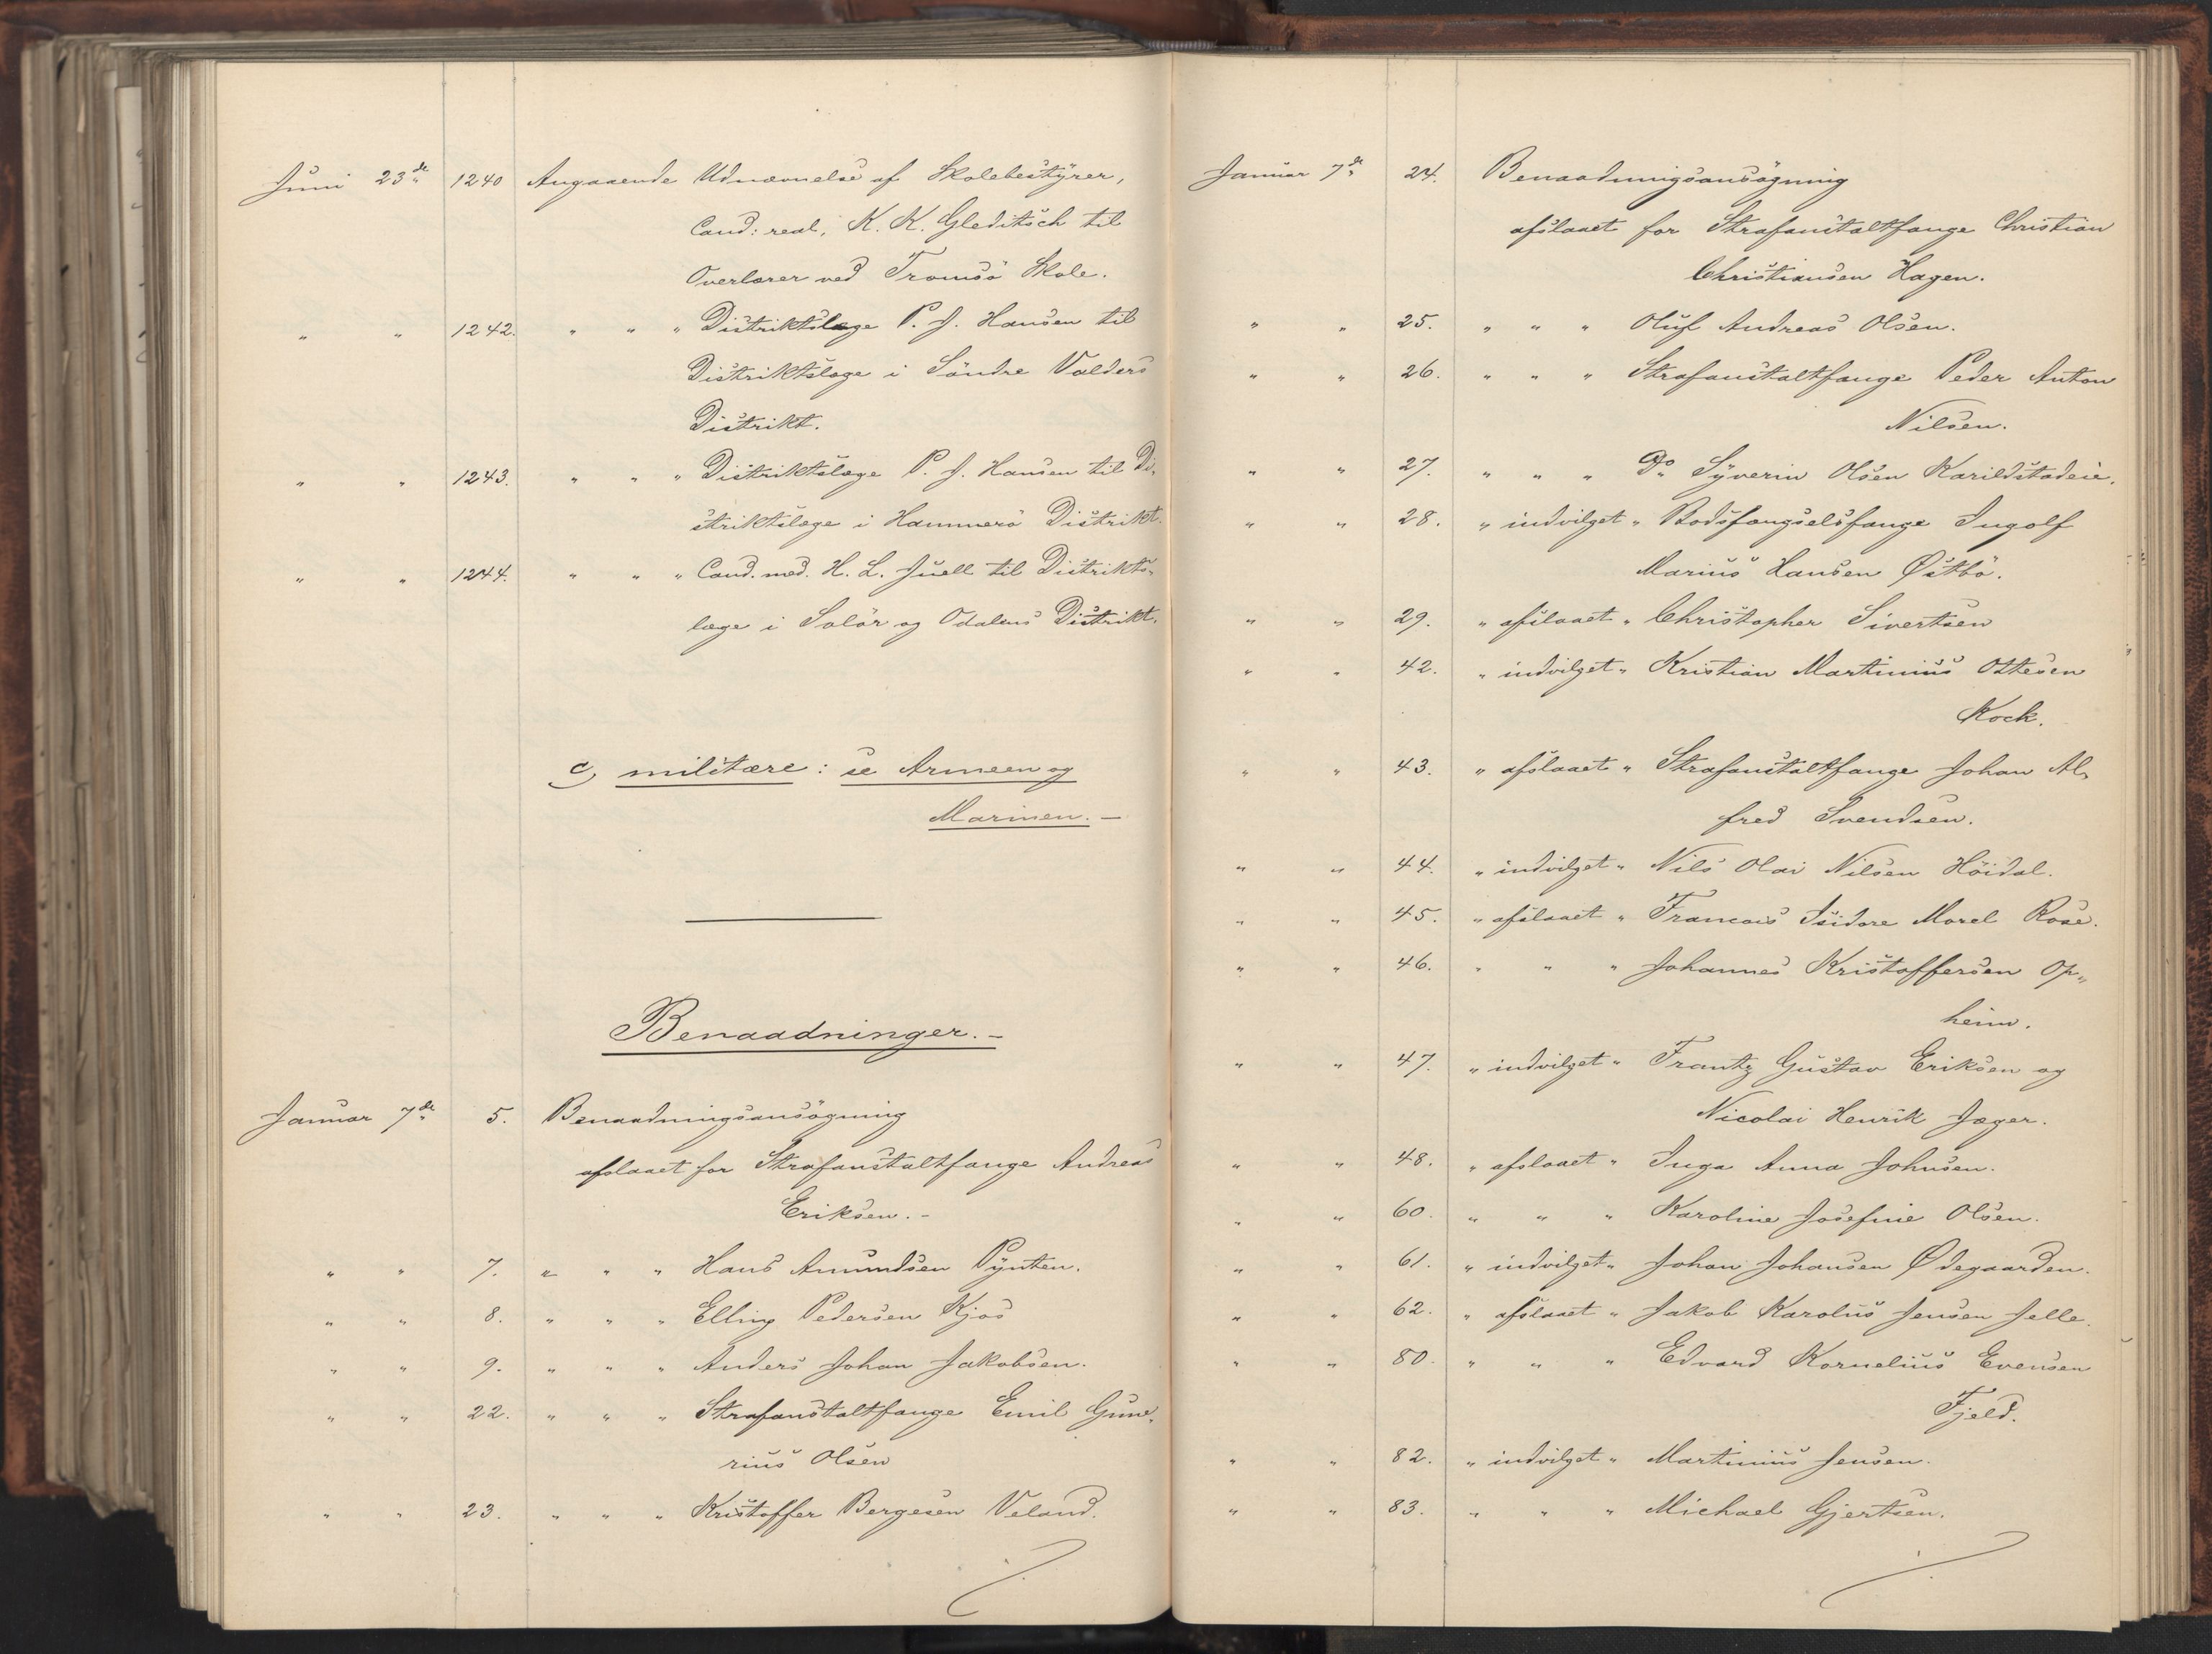 Juni 23de 1240 Angaaende Udnævnelse af Skolebestyrer,
Cand: real, K. K. Gleditsch til
Overlærer ved Tromsö Skole.
" " 1242. " " " Distriktslæge P. J. Hansen til
Distriktslæge i Söndre Valders
Distrikt.
" " 1243. " " " Distriktslæge P. J. Hansen til Di-
striktslæge i Hammerö Distrikt.
" " 1244. " " " Cand. med. H. L. Juell til Distrikts-
læge i Solör og Odalens Distrikt.
c) militære: se Armeen og
Marinen. –
Benaadninger. –
Januar 7de 5. Benaadningsansögning
afslaaet for Strafanstaltfange Andreas
Eriksen. –
" " 7. " " " Hans Amundsen Pynten.
" " 8. " " " Elling Pedersen Kjos
" " 9. " " " Anders Johan Jakobsen.
" " 22. " " " Strafanstaltfange Emil Gune-
rius Olsen
" " 23. " " " Kristoffer Bergesen Veland.
Januar 7de 24. Benaadningsansögning
afslaaet for Strafanstaltfange Christian
Christiansen Hagen.
" " 25. " " " Oluf Andreas Olsen.
" " 26. " " " Strafanstaltfange Peder Anton
Nilsen.
" " 27. " " " Do Syverin Olsen Karildstadeie.
" " 28. " indvilget " Bodsfængselsfange Ingolf
Marius Hansen Østbö.
" " 29. " afslaaet " Christopher Sivertsen
" " 42. " indvilget " Kristian Martinius Ottesen
Kock.
" " 43. " afslaaet " Strafanstaltfange Johan Al-
fred Svendsen.
" " 44. " indvilget " Nils Olai Nilsen Höidal.
" " 45. " afslaaet " Francois Isidore Morel Rose.
" " 46. " " " Johannes Kristoffersen Op-
heim.
" " 47. " indvilget " Frantz Gustav Eriksen og
Nicolai Henrik Jæger.
" " 48. " afslaaet " Inga Anna Johnsen.
" " 60. " " " Karoline Josefine Olsen.
" " 61. " indvilget " Johan Johansen Ødegaarden.
" " 62. " afslaaet " Jakob Karolus Jensen Jelle.
" " 80. " " " Edvard Kornelius Evensen
Fjeld.
" " 82. " indvilget " Martinius Jensen.
" " 83. " " " Michael Gjertsen.